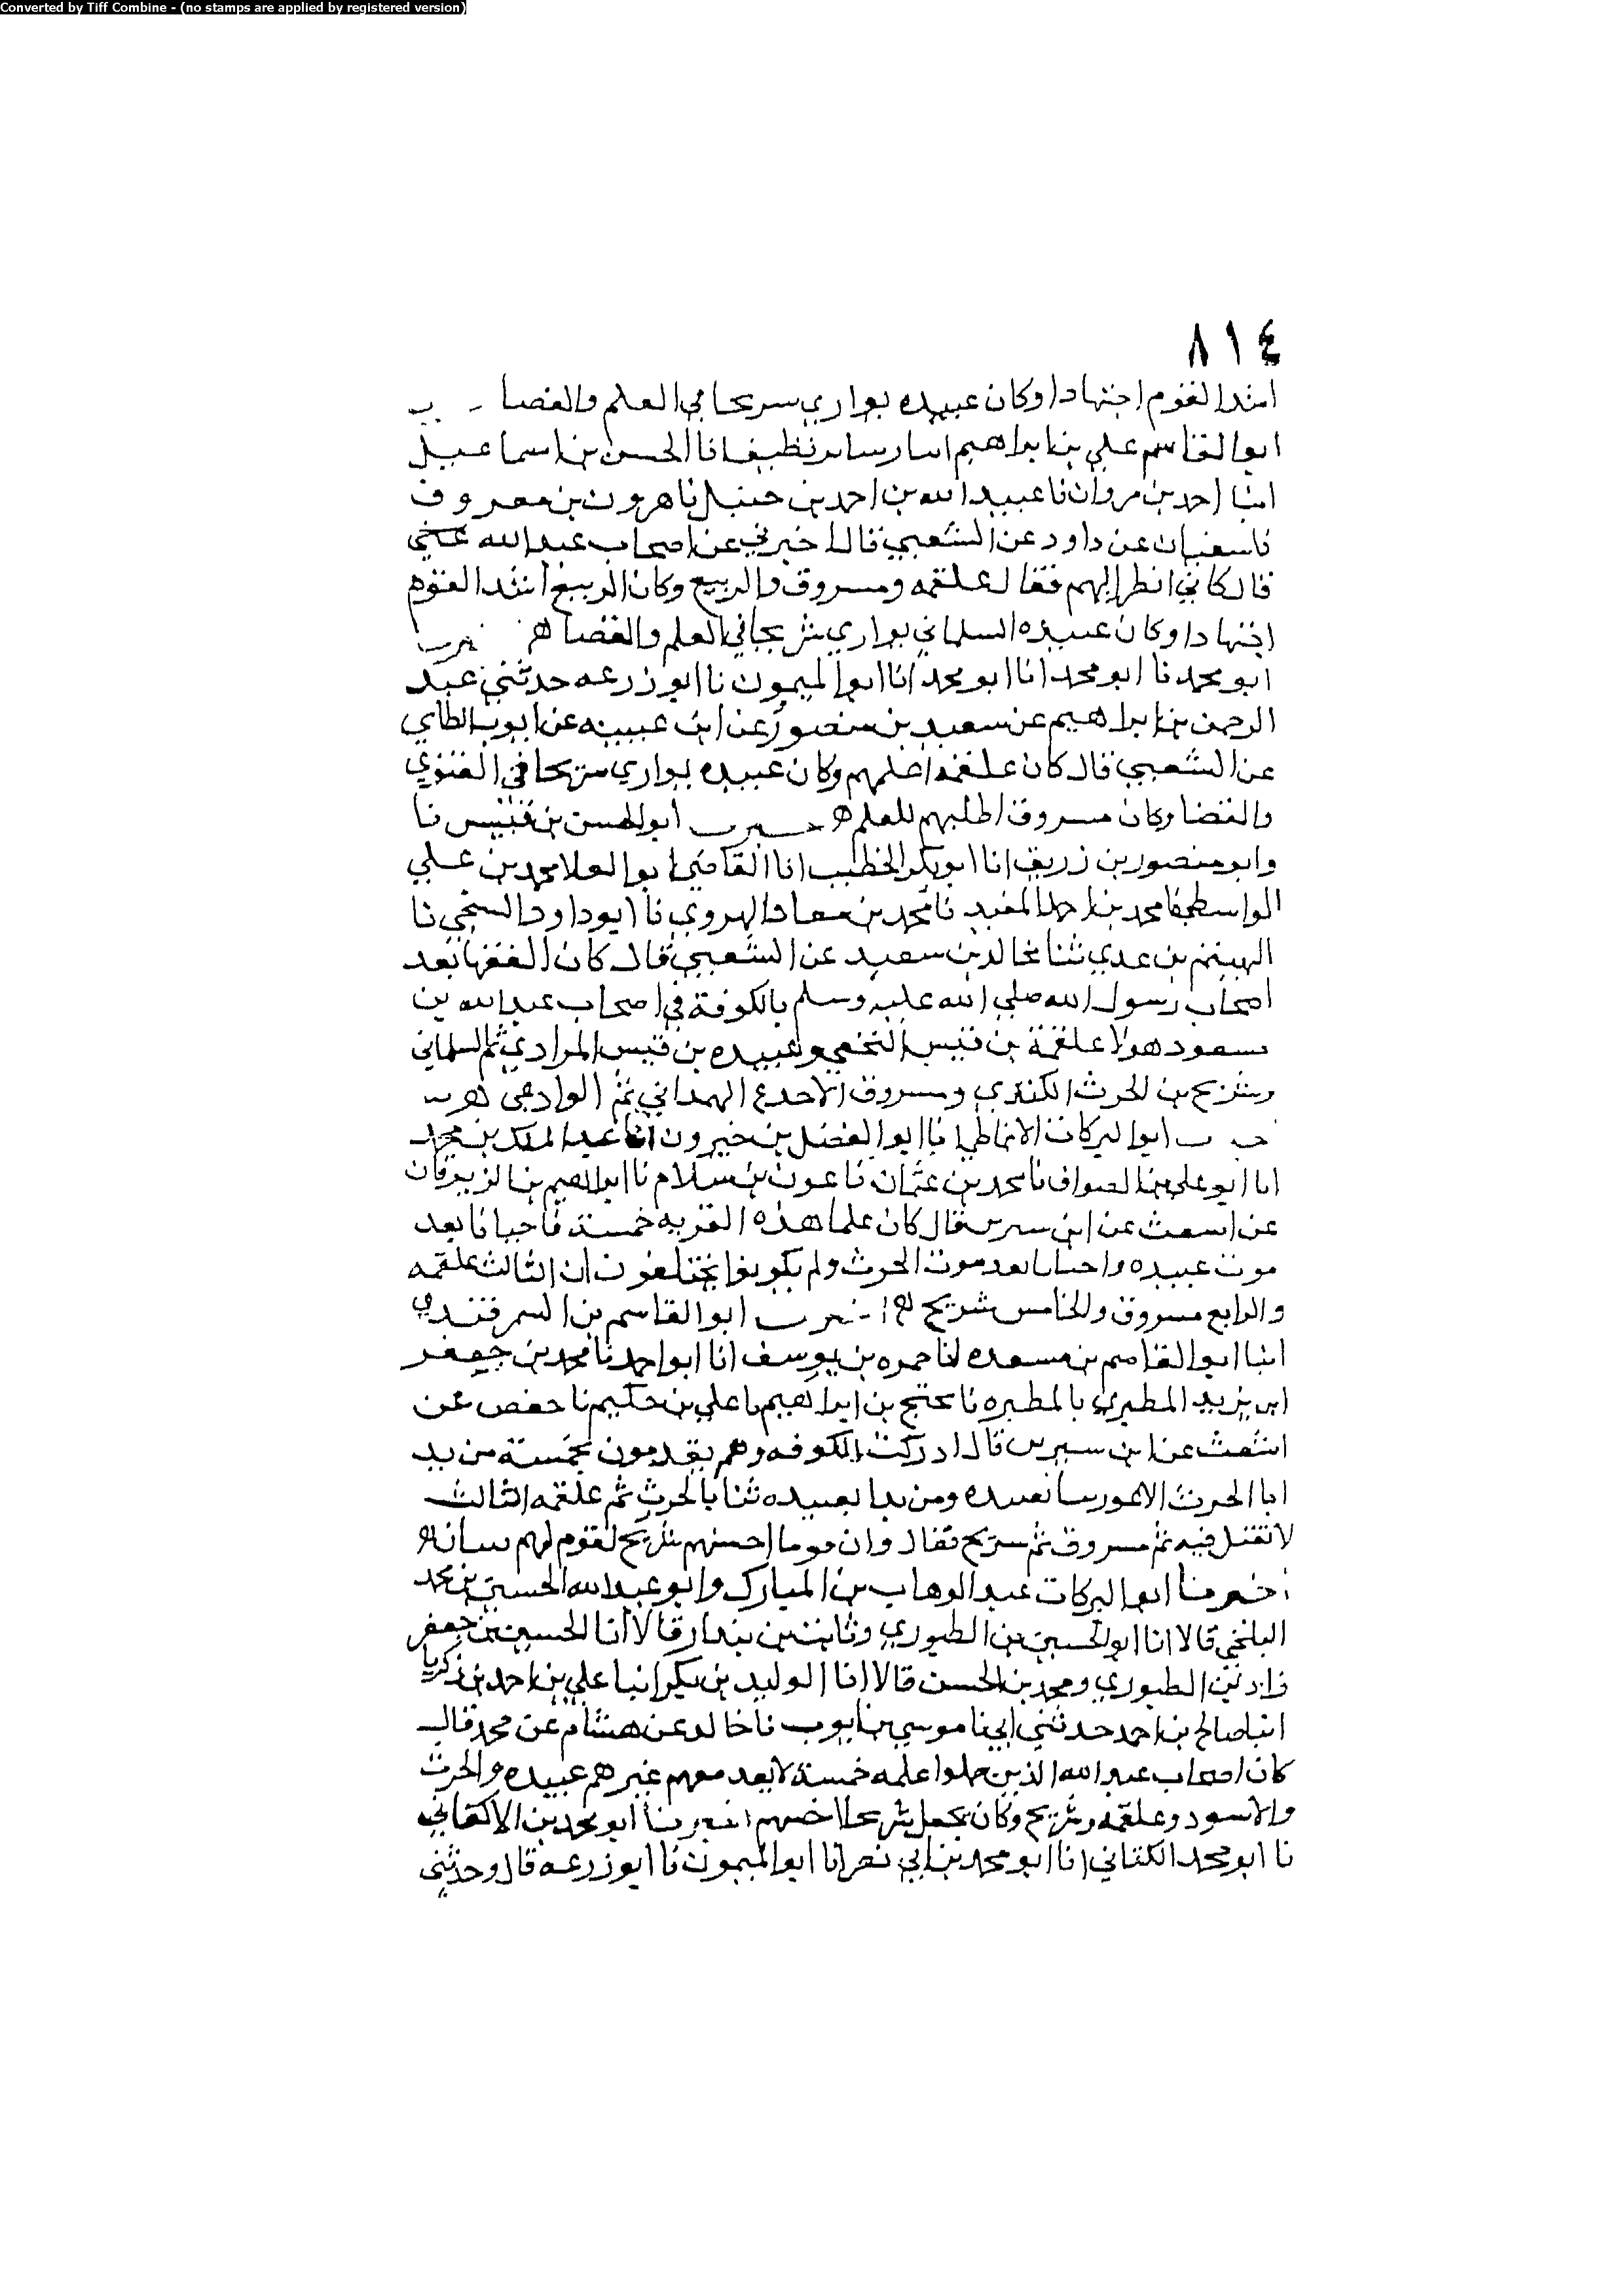 Converted by Tiff Combine - (no stamps are applied by registered version)
٨١٤
اشد القوم اجتهادا وكان عبيده يوازي سريحا في العلم والقضا
ابو القاسم علي بن ابراهيم رشا بن نظيف انا الحسن بن اسماعيل
انبا احمد بن مروان نا عبيد الله بن احمد بن حنبل نا هرون بن معروف
نا سفيان عن داود عن الشعبي قال اخبرني عن اصحاب عبد الله
قال كاني انظر اليهم فقال علقمه ومسروق والربيع وكان الربيع اشد القوم
اجتهادا وكان عبيده السلماني يوازي شريحا في العلم والقضا
ابو محمد نا ابو محمد انا ابو محمد انا ابو الميمون نا ابو زرعه حدثني عبد
الرحمن بن ابراهيم عن سعيد بن منصور عن ابن عيينه عن ايوب الطاي
عن الشعبي قال كان علقمه اعلمهم وكان عبيده يوازي شريحا في الفتوي
والقضا وكان مسروق اطلبهم للعلم ابو الحسن بن قبيس نا
وابو منصور بن زريق انا ابو بكر الخطيب انا القاضي ابو العلا محمد بن علي
الواسطي نا محمد بن احمد المفيد نا محمد بن معاذ الهروي نا ابو داود السنجي نا
الهيثم بن عدي ثنا مجالد بن سعيد عن الشعبي قال كان الفقها بعد
اصحاب رسول الله صلي الله عليه وسلم بالكوفة في اصحاب عبد الله بن
مسعود هولا علقمة بن قيس النخعي وعبيده بن قيس المرادي ثم السلماني
وشريح بن الحرث الكندي ومسروق الاجدع الهمداني ثم الوادعي
ابو البركات الانماطي انا ابو الفضل بن خيرون انا عبد الملك بن محمد
انا ابو علي بن الصواف نا محمد بن عثمان نا عون بن سلام نا ابراهيم بن الزبرقان
عن اسعث عن ابن سيرين قال كان علما هذه القريه خمسة فاحيانا بعد
موت عبيده واحيانا بعد موت الحرث ولم يكونوا يختلفون ان الثالث علقمه
والرابع مسروق والخامس شريح ابو القاسم بن السمرقندي
انبا ابو القاسم بن مسعده انا حمزه بن يوسف انا ابو احمد نا محمد بن جعفر
ابن يزيد المطيري بالمطيره نا محتج بن ابراهيم نا علي بن حكيم نا حفص عن
اشعث عن ابن سيرين قال ادركت الكوفه وهم يقدمون خمسة من بد
ابا الحرث الاعور ثنا بعبيده ومن بدا بعبيده ثنا بالحرث ثم علقمه الثالث
لا تقتل فيه ثم مسروق ثم سريح فقال وان قوما احسنهم شريح لقوم لهم سان
اخبرنا ابو البركات عبد الوهاب بن المبارك وابو عبد الله الحسين بن محمد
البلخي قالا انا ابو الحسين بن الطيوري وثابت بن بندار قالا انا الحسين بن جعفر
زاد بن الطيوري ومحمد بن الحسن قالا انا الوليد بن بكر انبا علي بن احمد بن زكريا
انبا صالح بن احمد حدثني ابي نا موسي بن ايوب نا خالد عن هشام عن محمد قال
كان اصحاب عبد الله الذين حملوا علمه خمسة لا يعد معهم غيرهم عبيده والحرث
والاسود وعلقمه وشريح وكان يجعل شريحا اخسهم اخبرنا ابو محمد بن الاكفاني
نا ابو محمد الكتاني انا ابو محمد بن ابي نصر انا ابو الميمون نا ابو زرعه قال وحدثني